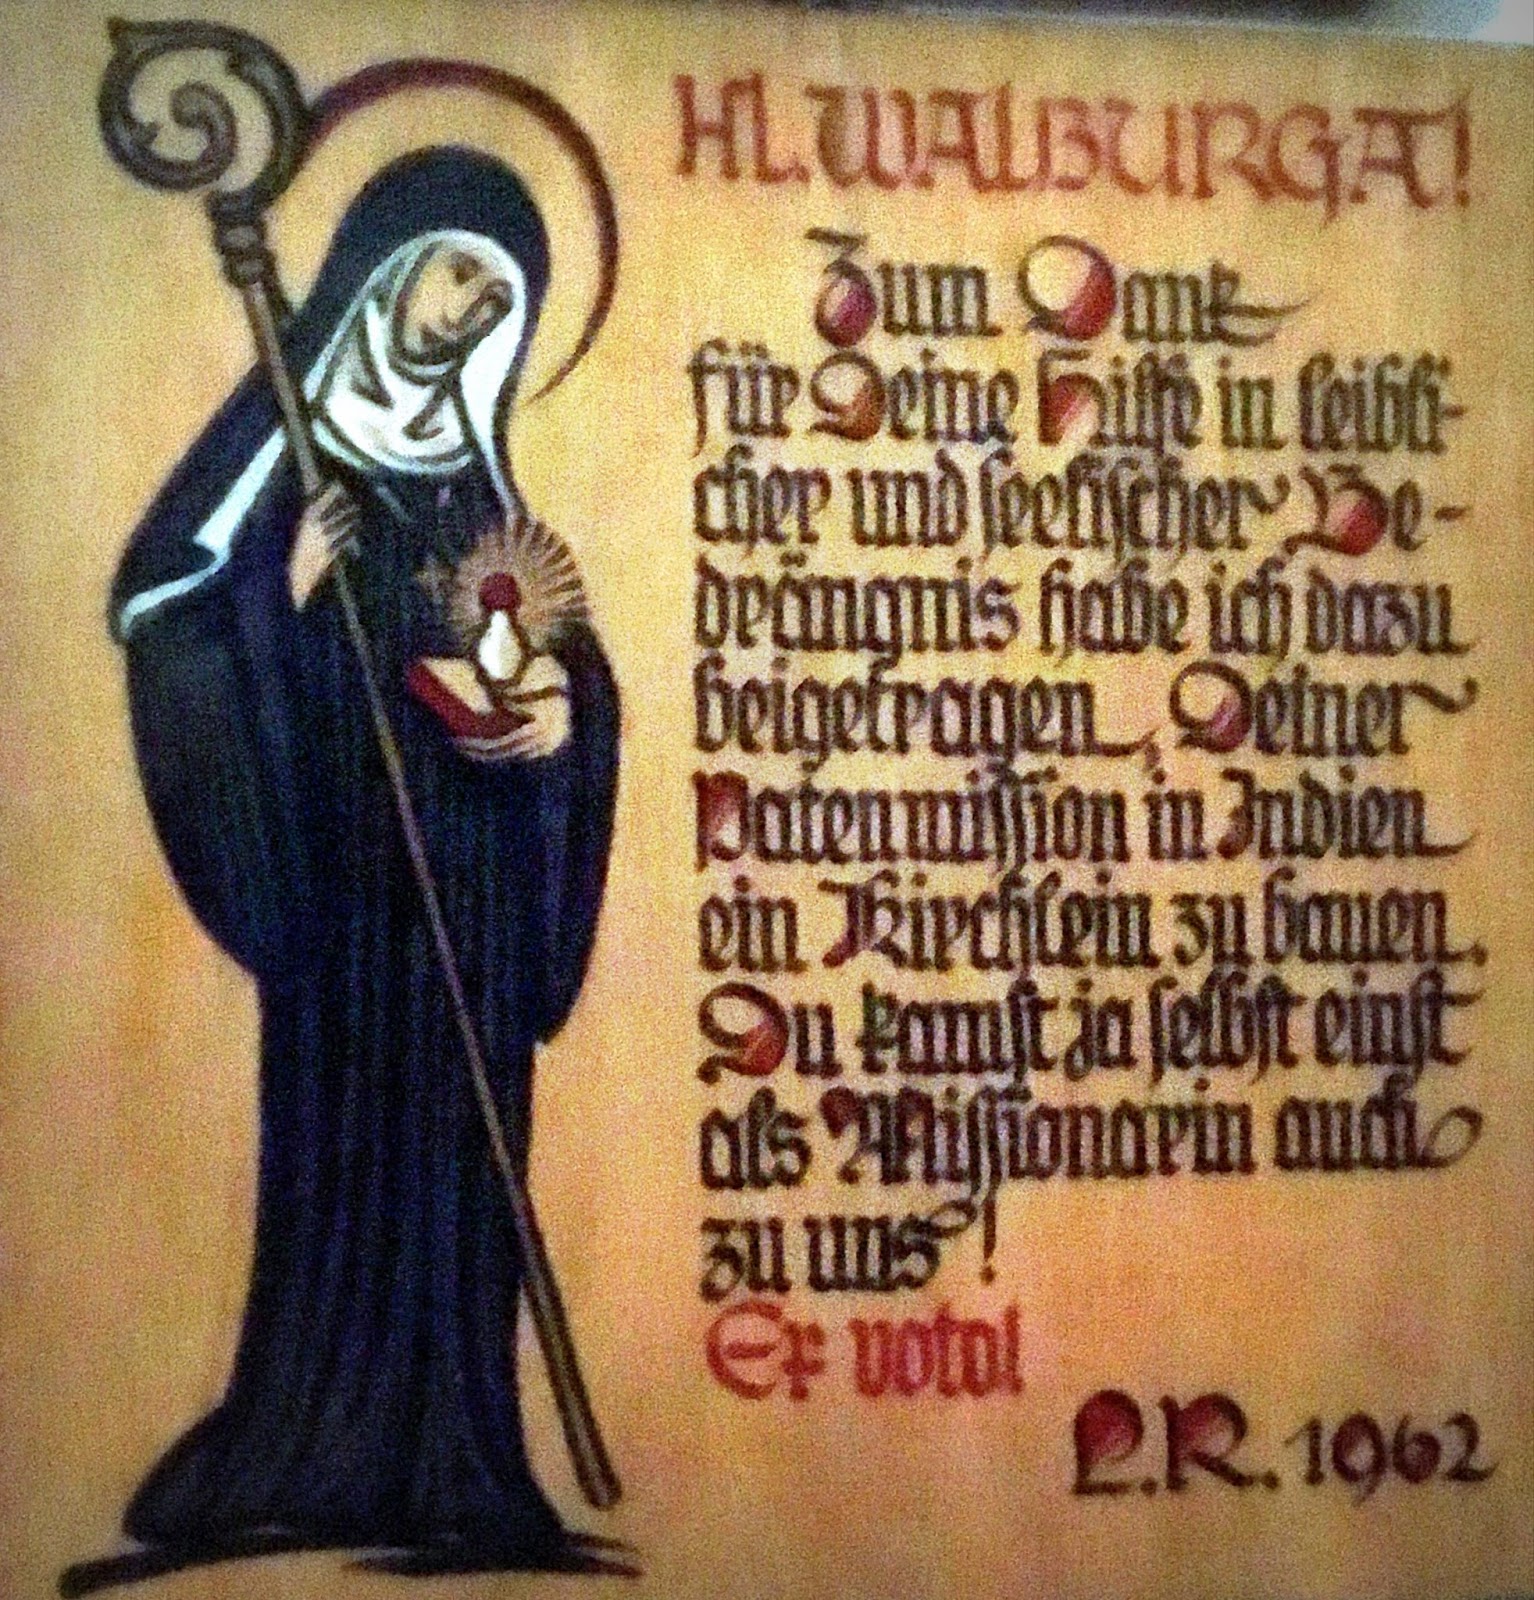 HL. WALBURGA!
Zum Dank
für Deine Hilfe in leibli-
cher und seelischer Be-
drängnis habe ich dazu
beigetragen, Deiner
Patenmission in Indien
ein Kirchlein zu bauen.
Du kamst ja selbst einst
als Missionarin auch
zu uns!
Ex voto!
L.R. 1962